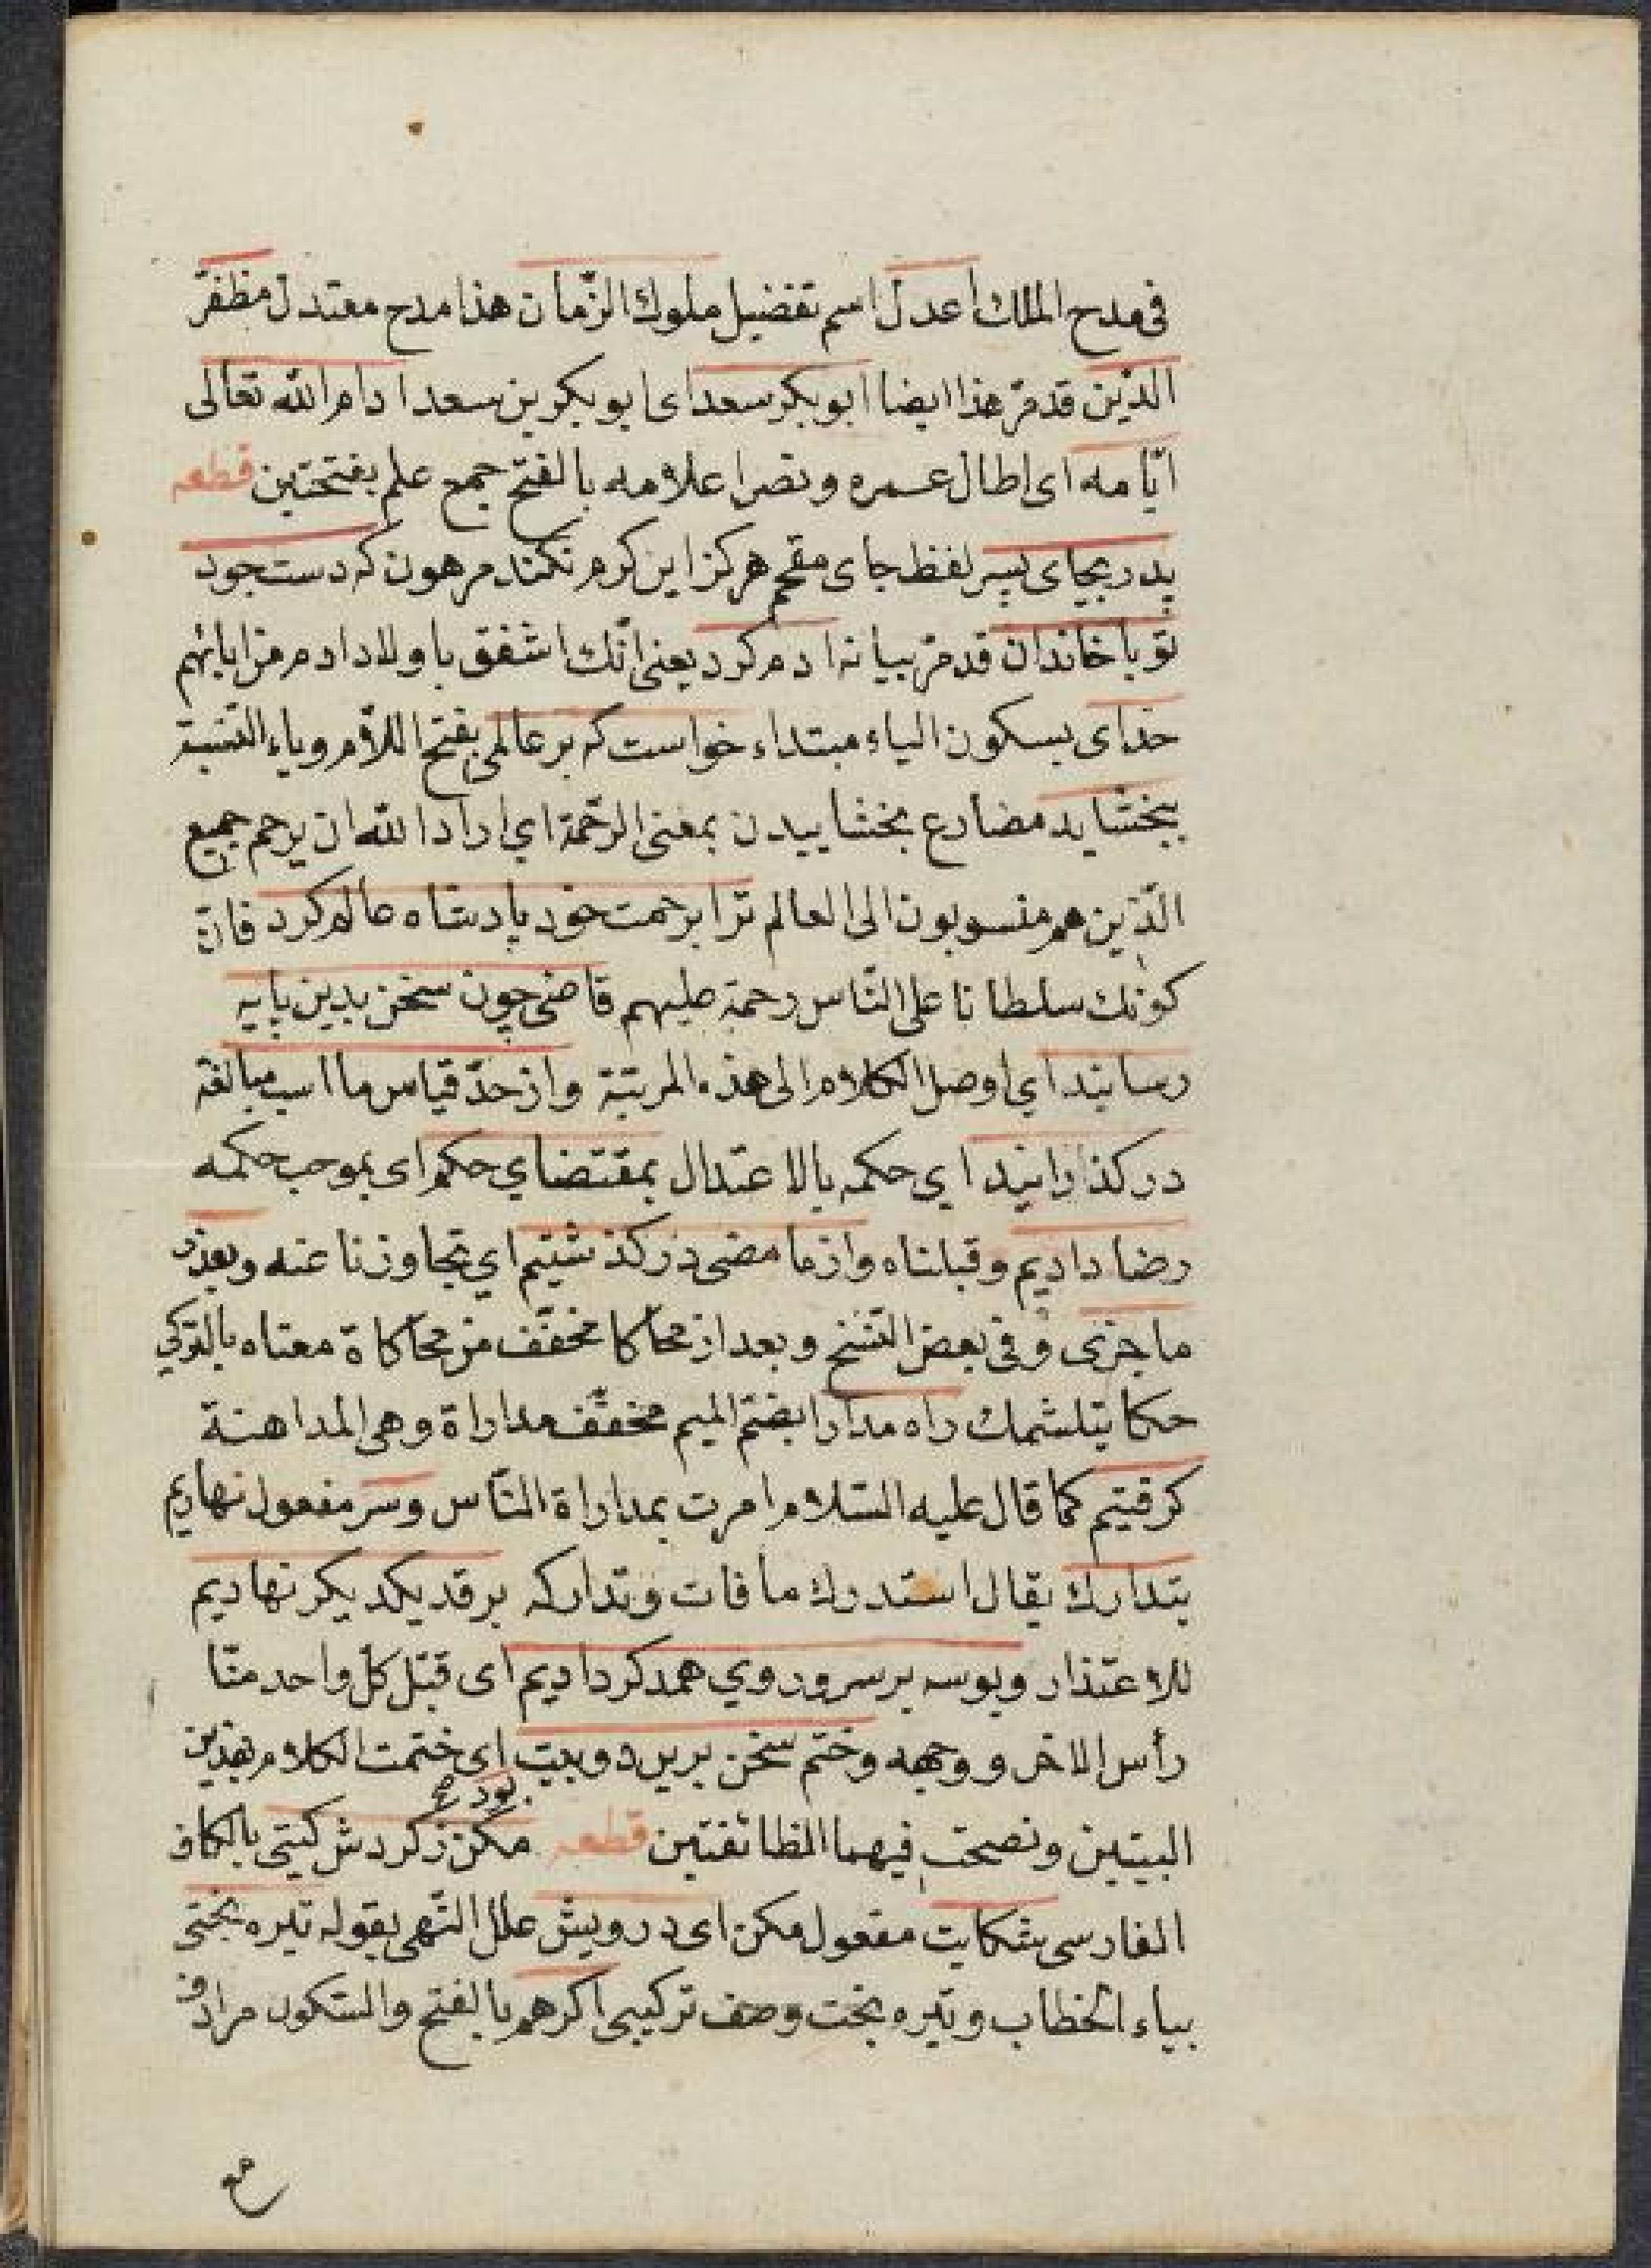 في مدح الملك اعدل اسم تفضيل ملوك الزّمان هذا مدح معتدل مظفّر
الدّين قد مرّ هذا ايضا ابو بكر سعد اى ابو بكر بن سعد ادام الله تعالى
ايّامه اى اطال عمره ونصر اعلامه بالفتح جمع علم بفتحتين قطعه
پدر بجاى پسر لفظ جاى مقحم هركز اين كرم نكند مرهون كه دست جود
تو با خاندان قد مرّ بيانه ادم كرد يعنى انّك اشفق باولاد ادم من ابائهم
خداى بسكون الياء مبتداء خواست كه بر عالمى بفتح اللام وياء النسبة
ببخشايد مضارع بخشاييدن بمعنى الرّحمة اي اراد الله ان يرحم جميع
الّذين هم منسوبون الى العالم ترا برحمت خود پادشاه عالم كرد فانّ
كونك سلطانا على النّاس رحمة عليهم قاضى چون سخن بدين پايه
رسانيد اي اوصل الكلام الى هذه المرتبة واز حدّ قياس ما اسب مبالغة
در كذارانيد اي حكمه بالاعتدال بمقتضاي حكم اى بموجب حكمه
رضا داديم وقبلناه واز ما مضى در كذشتيم اي تجاوزنا عنه وبعد از
ما جرى وفى بعض النّسخ وبعد از محاكا مخفّف من محاكاة معناه بالتركي
حكايتلشمك راه مدارا بضم الميم مخفّف مداراة وهى المداهنة
كرفتيم كما قال عليه السّلام امرت بمداراة النّاس وسر مفعول نهاديم
بتدارك يقال استدرك ما فات وتداركه بر قد يكديكر نهاديم
للاعتذار وبوسه بر سر وروي همدكر داديم اى قبّل كلّ واحد منّا
رأس الاخر ووجهه وختم سخن برين دو بيت اى ختمت الكلام بهذين
بود صح
البيتين ونصحت فيهما الطائفتين قطعه مكن ز كردش كيتى بالكاف
الفارسى شكايت مفعول مكن اى درويش علل النّهى بقوله تيره بختى
بياء الخطاب وتيره بخت وصف تركيبى اكر هم بالفتح والسّكون مرادف